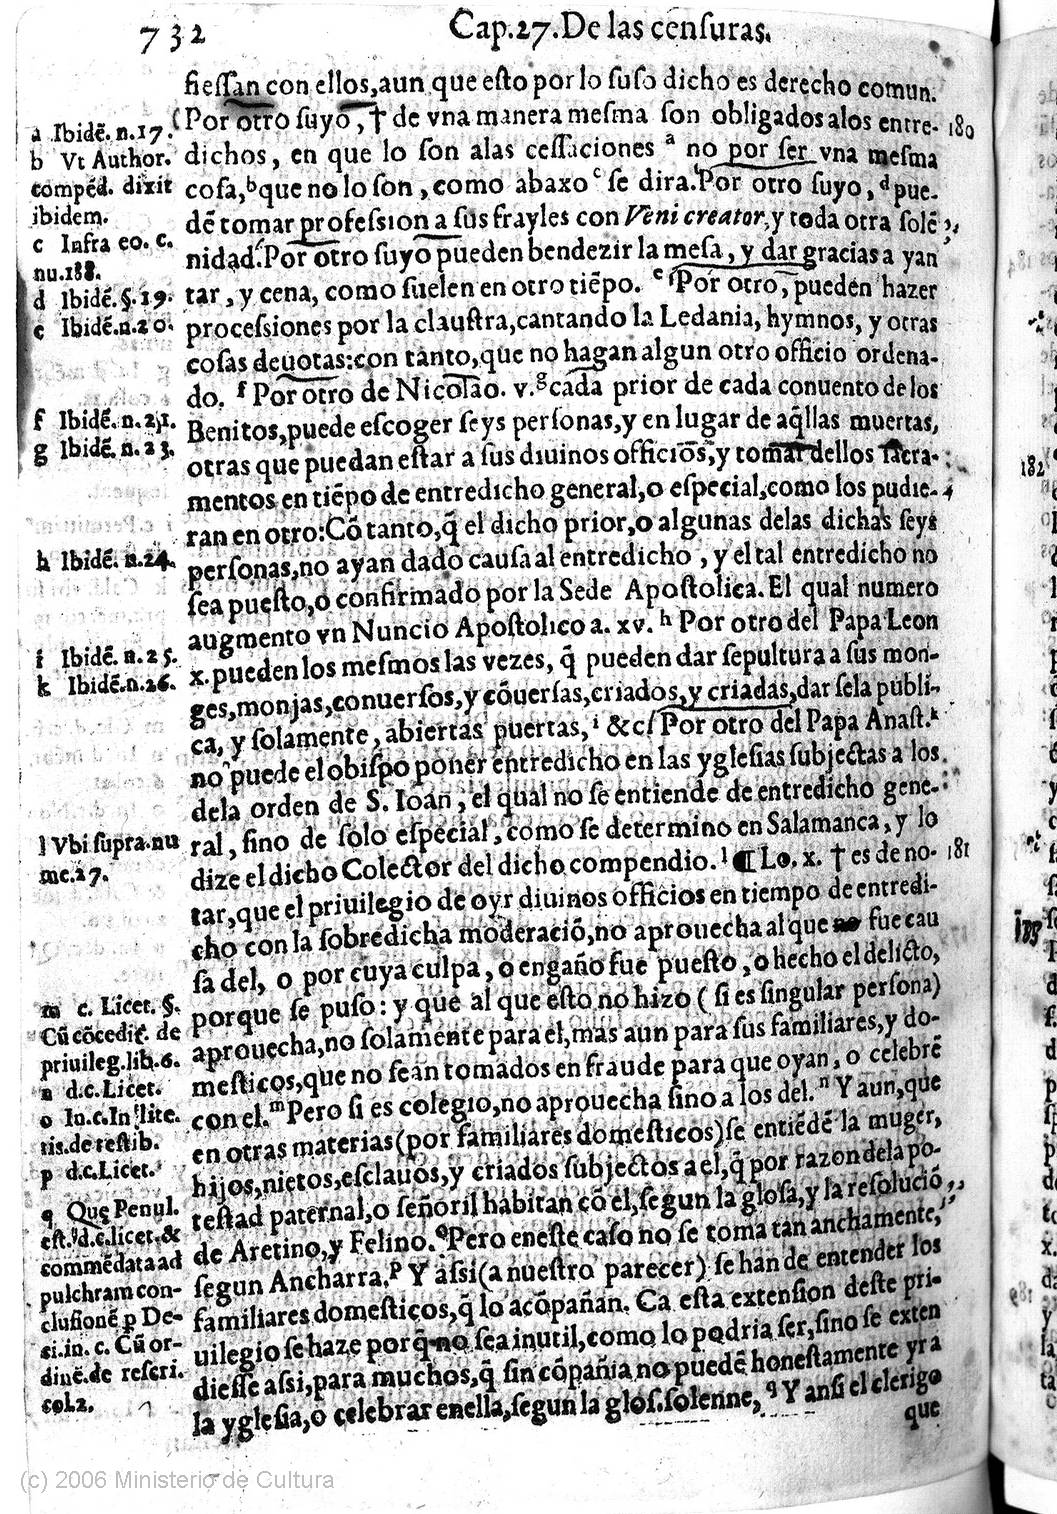 732
Cap.27.De las censuras.
fieſſan con ellos,aun que eſto por lo ſuſo dicho es derecho comun.
Por otro ſuyo, † de vna manera meſma ſon obligados alos entre- 180
dichos, en que lo ſon alas ceſſaciones ª no por ſer vna meſma
coſa,ᵇ que no lo ſon, como abaxo ᶜ ſe dira. Por otro ſuyo, ᵈ pue-
dẽ tomar profeſsion a ſus frayles con Veni creator, y toda otra ſolẽ
nidad. Por otro ſuyo pueden bendezir la meſa, y dar gracias a yan
tar, y cena, como ſuelen en otro tiẽpo. ᵉ Por otro, pueden hazer
proceſsiones por la clauſtra,cantando la Ledania, hymnos, y otras
coſas deuotas:con tanto,que no hagan algun otro officio ordena-
do. ᶠ Por otro de Nicolao. v.ᵍ cada prior de cada conuento de los
Benitos,puede eſcoger ſeys perſonas,y en lugar de aq̃llas muertas,
otras que puedan eſtar a ſus diuinos officios,y tomar dellos ſacra-
mentos en tiẽpo de entredicho general,o eſpecial,como los pudie-
ran en otro:Cõ tanto,q̃ el dicho prior,o algunas delas dichas ſeys
perſonas,no ayan dado cauſa al entredicho, y el tal entredicho no
ſea pueſto,o confirmado por la Sede Apoſtolica. El qual numero
augmento vn Nuncio Apoſtolico a. xv. ʰ Por otro del Papa Leon
x.pueden los meſmos las vezes, q̃ pueden dar ſepultura a ſus mon-
ges,monjas,conuerſos,y cõuerſas,criados,y criadas,dar ſela publi-
ca, y ſolamente, abiertas puertas, ⁱ &c. Por otro del Papa Anaſt.ᵏ
no puede el obiſpo poner entredicho en las ygleſias ſubjectas a los
dela orden de S. Ioan, el qual no ſe entiende de entredicho gene-
ral, ſino de ſolo eſpecial, como ſe determino en Salamanca, y lo
dize el dicho Colector del dicho compendio. ˡ ¶ Lo. x. † es de no- 181
tar,que el priuilegio de oyr diuinos officios en tiempo de entredi-
cho con la ſobredicha moderaciõ,no aprouecha al que no fue cau
ſa del, o por cuya culpa, o engaño fue pueſto, o hecho el delicto,
porque ſe puſo: y que al que eſto no hizo ( ſi es ſingular perſona)
aprouecha,no ſolamente para el,mas aun para ſus familiares,y do-
meſticos,que no ſean tomados en fraude para que oyan, o celebrẽ
con el.ᵐ Pero ſi es colegio,no aprouecha ſino a los del. ⁿ Y aun,que
en otras materias(por familiares domeſticos)ſe entiẽdẽ la muger,
hijos,nietos,eſclauos,y criados ſubjectos a el,q̃ por razon dela po-
teſtad paternal,o ſeñoril habitan cõ el,ſegun la gloſa,y la reſoluciõ
de Aretino,y Felino.º Pero eneſte caſo no ſe toma tan anchamente,
ſegun Ancharra.ᵖ Y aſsi(a nueſtro parecer) ſe han de entender los
familiares domeſticos,q̃ lo acõpañan. Ca eſta extenſion deſte pri-
uilegio ſe haze por q̃ no ſea inutil,como lo podria ſer,ſino ſe exten
dieſſe aſsi,para muchos,q̃ ſin cõpañia no puedẽ honeſtamente yr a
la ygleſia,o celebrar enella,ſegun la gloſ.ſolenne, ᑫ Y anſi el clerigo
que
a Ibidẽ. n.17.
b Vt Author.
compẽd. dixit
ibidem.
c Infra eo. c.
nu.188.
d Ibidẽ. §.19.
e Ibidẽ.n.20.
f Ibidẽ. n.21.
g Ibidẽ. n.23.
h Ibidẽ. n.24.
i Ibidẽ. n.25.
k Ibidẽ.n.26.
l Vbi ſupra.nu
me.27.
m c. Licet. §.
Cũ cõcedit. de
priuileg.lib.6.
n d.c.Licet.
o In.c.In lite.
ris.de reſtib.
p d.c.Licet.
q Quę Penul.
eſt. d.c.licet.&
commẽdata ad
pulchram con-
cluſionẽ p De-
ci.in. c. Cũ or-
dinẽ.de reſcri.
col.2.
182
(c) 2006 Ministerio de Cultura